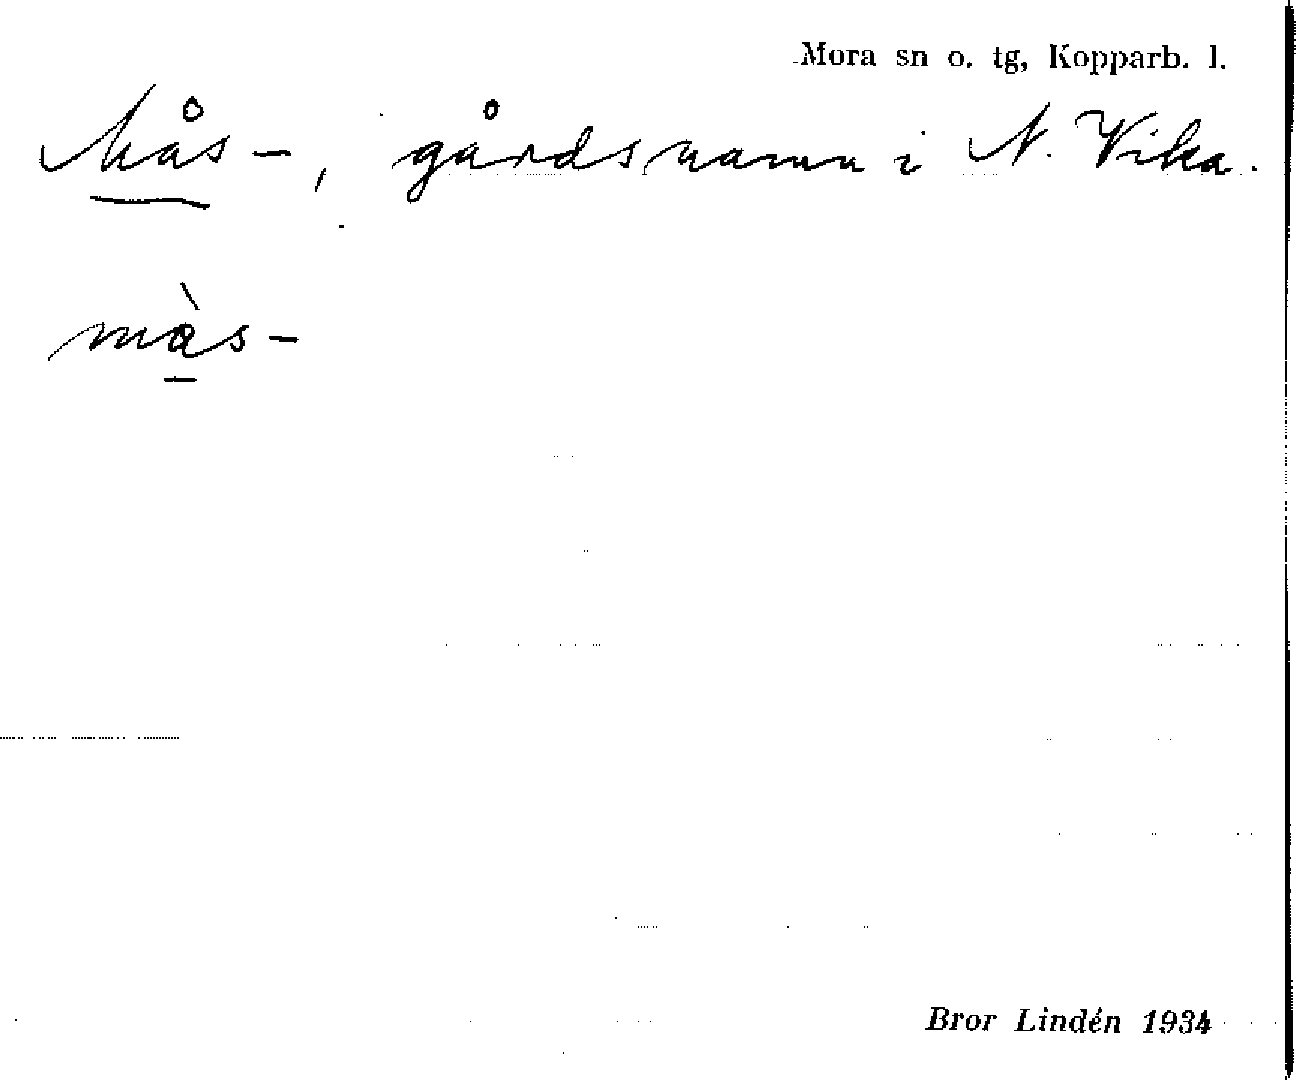 Mora sn o. tg, Kopparb. l.
Mås-, gårdsnamn i N. Vika.
màs-
Bror Lindén 1934